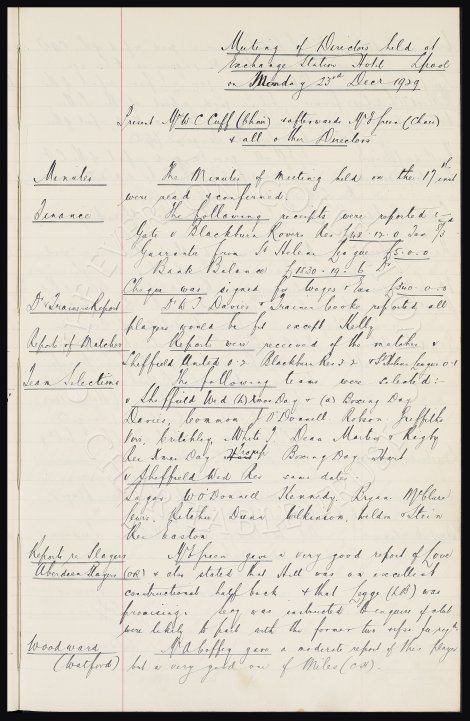 Meeting of Directors held at
Exchange Station Hotel L'pool
on Monday 23rd Decr 1929
Present Mr W C Cuff (Chair) & afterwards Mr E Green (Chair)
& all other Directors
Minutes
The Minutes of Meeting held on the 17th inst
were read & confirmed.
Finance
The following receipts were reported :-
Gate v Blackburn Rovers Res £48-12-0 Tax 5/3d
Guarantee from St Helens League £5-0-0
Bank Balance £1830-19-6 Dr
Cheque was signed for Wages & Tax £340-0-0
Dr & Trainers Report
Dr W J Davies & Trainer Cooke reported all
players would be fit except Kelly
Reports of Matches
Report were received of the matches v
Sheffield United 0-2 Blackburn Res 2-2 & St Helens League 0-1
Team Selections
The following teams were selected :-
v Sheffield Wed (h) Xmas Day & (a) Boxing Day
Davies, Common & O'Donnell Robson, Griffiths
Voss, Critchley, White T Dean Martin & Rigby
Res Xmas Day Troup Boxing Day Hart
v Sheffield Wed Res same dates.
Sagar W O'Donnell Kennedy Bryan McClure
Lewis Ritchie Dunn Wilkinson, Weldon & Stein
Res Easton
Reports re Players
Aberdeen Players
Mr Green gave a very good report of Love
(OR) & also stated that Hill was an excellent
constructional half back & that Legge (LB) was
promising. Secy was instructed to enquire if club
were likely to part with the former two & price for
Woodward
(Watford)
Mr A Coffey gave a moderate report of this Player
but a very good one of Miles (OR).